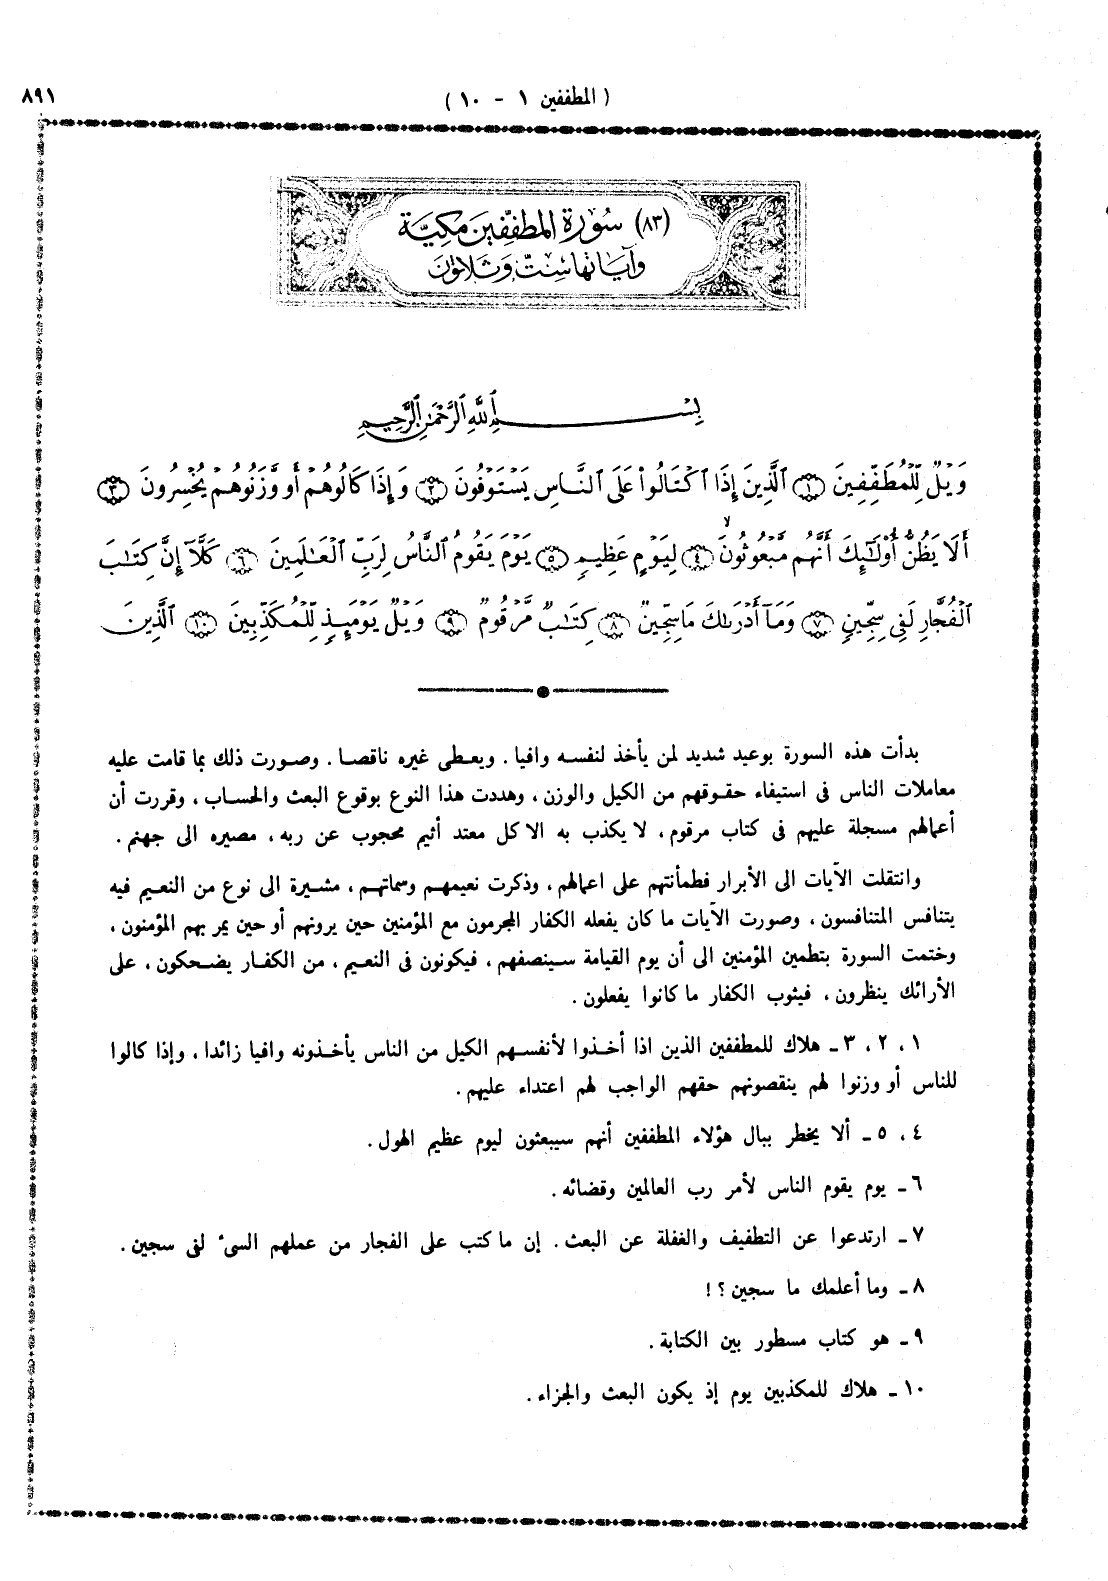 ( المطففين ١ - ١٠ )
٨٩١
(٨٣) سُورَة المطفِّفِينَ مَكِيَّة
وَآيَاتُهَا سِتٌّ وَثَلَاثُونَ
بِسْـــــــــمِ ٱللَّهِ ٱلرَّحْمَٰنِ ٱلرَّحِيمِ
وَيْلٌ لِّلْمُطَفِّفِينَ ۝١ ٱلَّذِينَ إِذَا ٱكْتَالُوا۟ عَلَى ٱلنَّاسِ يَسْتَوْفُونَ ۝٢ وَإِذَا كَالُوهُمْ أَو وَّزَنُوهُمْ يُخْسِرُونَ ۝٣
أَلَا يَظُنُّ أُو۟لَٰٓئِكَ أَنَّهُم مَّبْعُوثُونَ ۝٤ لِيَوْمٍ عَظِيمٍ ۝٥ يَوْمَ يَقُومُ ٱلنَّاسُ لِرَبِّ ٱلْعَٰلَمِينَ ۝٦ كَلَّآ إِنَّ كِتَٰبَ
ٱلْفُجَّارِ لَفِى سِجِّينٍ ۝٧ وَمَآ أَدْرَىٰكَ مَا سِجِّينٌ ۝٨ كِتَٰبٌ مَّرْقُومٌ ۝٩ وَيْلٌ يَوْمَئِذٍ لِّلْمُكَذِّبِينَ ۝١٠ ٱلَّذِينَ
بدأت هذه السورة بوعيد شديد لمن يأخذ لنفسه وافيا . ويعطى غيره ناقصا . وصورت ذلك بما قامت عليه
معاملات الناس فى استيفاء حقوقهم من الكيل والوزن ، وهددت هذا النوع بوقوع البعث والحساب ، وقررت أن
أعمالهم مسجلة عليهم فى كتاب مرقوم ، لا يكذب به الا كل معتد أثيم محجوب عن ربه ، مصيره الى جهنم .
وانتقلت الآيات الى الأبرار فطمأنتهم على اعمالهم ، وذكرت نعيمهم وسماتهم ، مشيرة الى نوع من النعيم فيه
يتنافس المتنافسون ، وصورت الآيات ما كان يفعله الكفار المجرمون مع المؤمنين حين يرونهم أو حين يمر بهم المؤمنون ،
وختمت السورة بتطمين المؤمنين الى أن يوم القيامة سينصفهم ، فيكونون فى النعيم ، من الكفار يضحكون ، على
الأرائك ينظرون ، فيثوب الكفار ما كانوا يفعلون .
١ ، ٢ ، ٣ ـ هلاك للمطففين الذين اذا أخذوا لأنفسهم الكيل من الناس يأخذونه وافيا زائدا ، وإذا كالوا
للناس أو وزنوا لهم ينقصونهم حقهم الواجب لهم اعتداء عليهم .
٤ ، ٥ ـ ألا يخطر ببال هؤلاء المطففين أنهم سيبعثون ليوم عظيم الهول .
٦ ـ يوم يقوم الناس لأمر رب العالمين وقضائه .
٧ ـ ارتدعوا عن التطفيف والغفلة عن البعث . إن ما كتب على الفجار من عملهم السىء لفى سجين .
٨ ـ وما أعلمك ما سجين ؟ !
٩ ـ هو كتاب مسطور بين الكتابة .
١٠ ـ هلاك للمكذبين يوم إذ يكون البعث والجزاء .